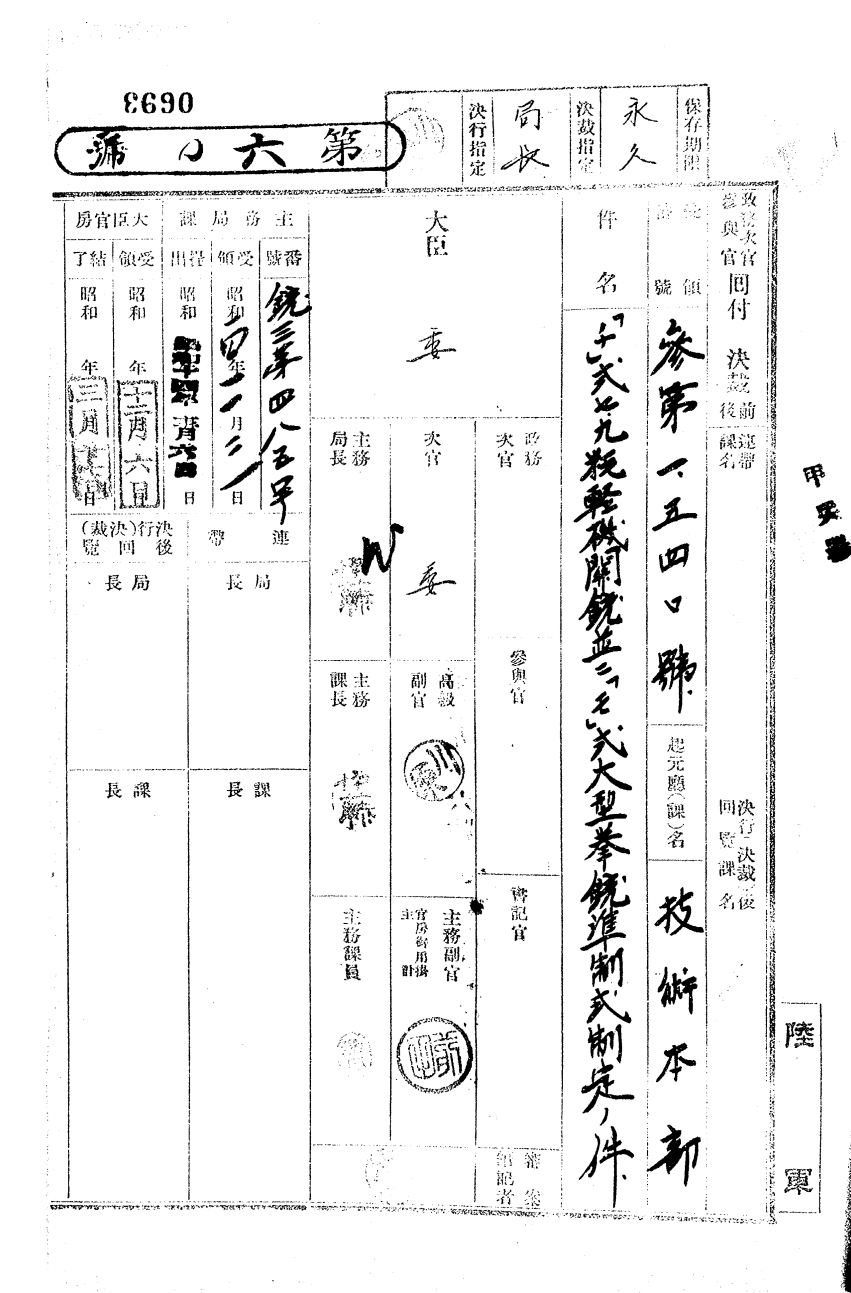 0693
第六〇號
保存期限
永久
決裁指定
局長
決行指定
政務次官
參與官
回付
決裁
前
後
連帶
課名
決行、決裁後
回覽課名
受領
番號
參第一、五四〇號
起元廳(課)名
技術本部
件名
「チ」式七.九粍輕機關銃並ニ「モ」式大型拳銃準制式制定ノ件
大臣
委
政務
次官
次官
委
參與官
書記官
高級
副官
主務副官
主務
局長
主務
課長
主務課員
審案
筆記者
主務局課
番號
銃三第四八五号
受領
昭和一四年一一月二一日
提出
昭和
日
大臣官房
受領
昭和
年
十二月六日
結了
昭和
年
三月
日
連帶
局長
課長
決行(決裁)
後回覽
局長
課長
甲
陸軍